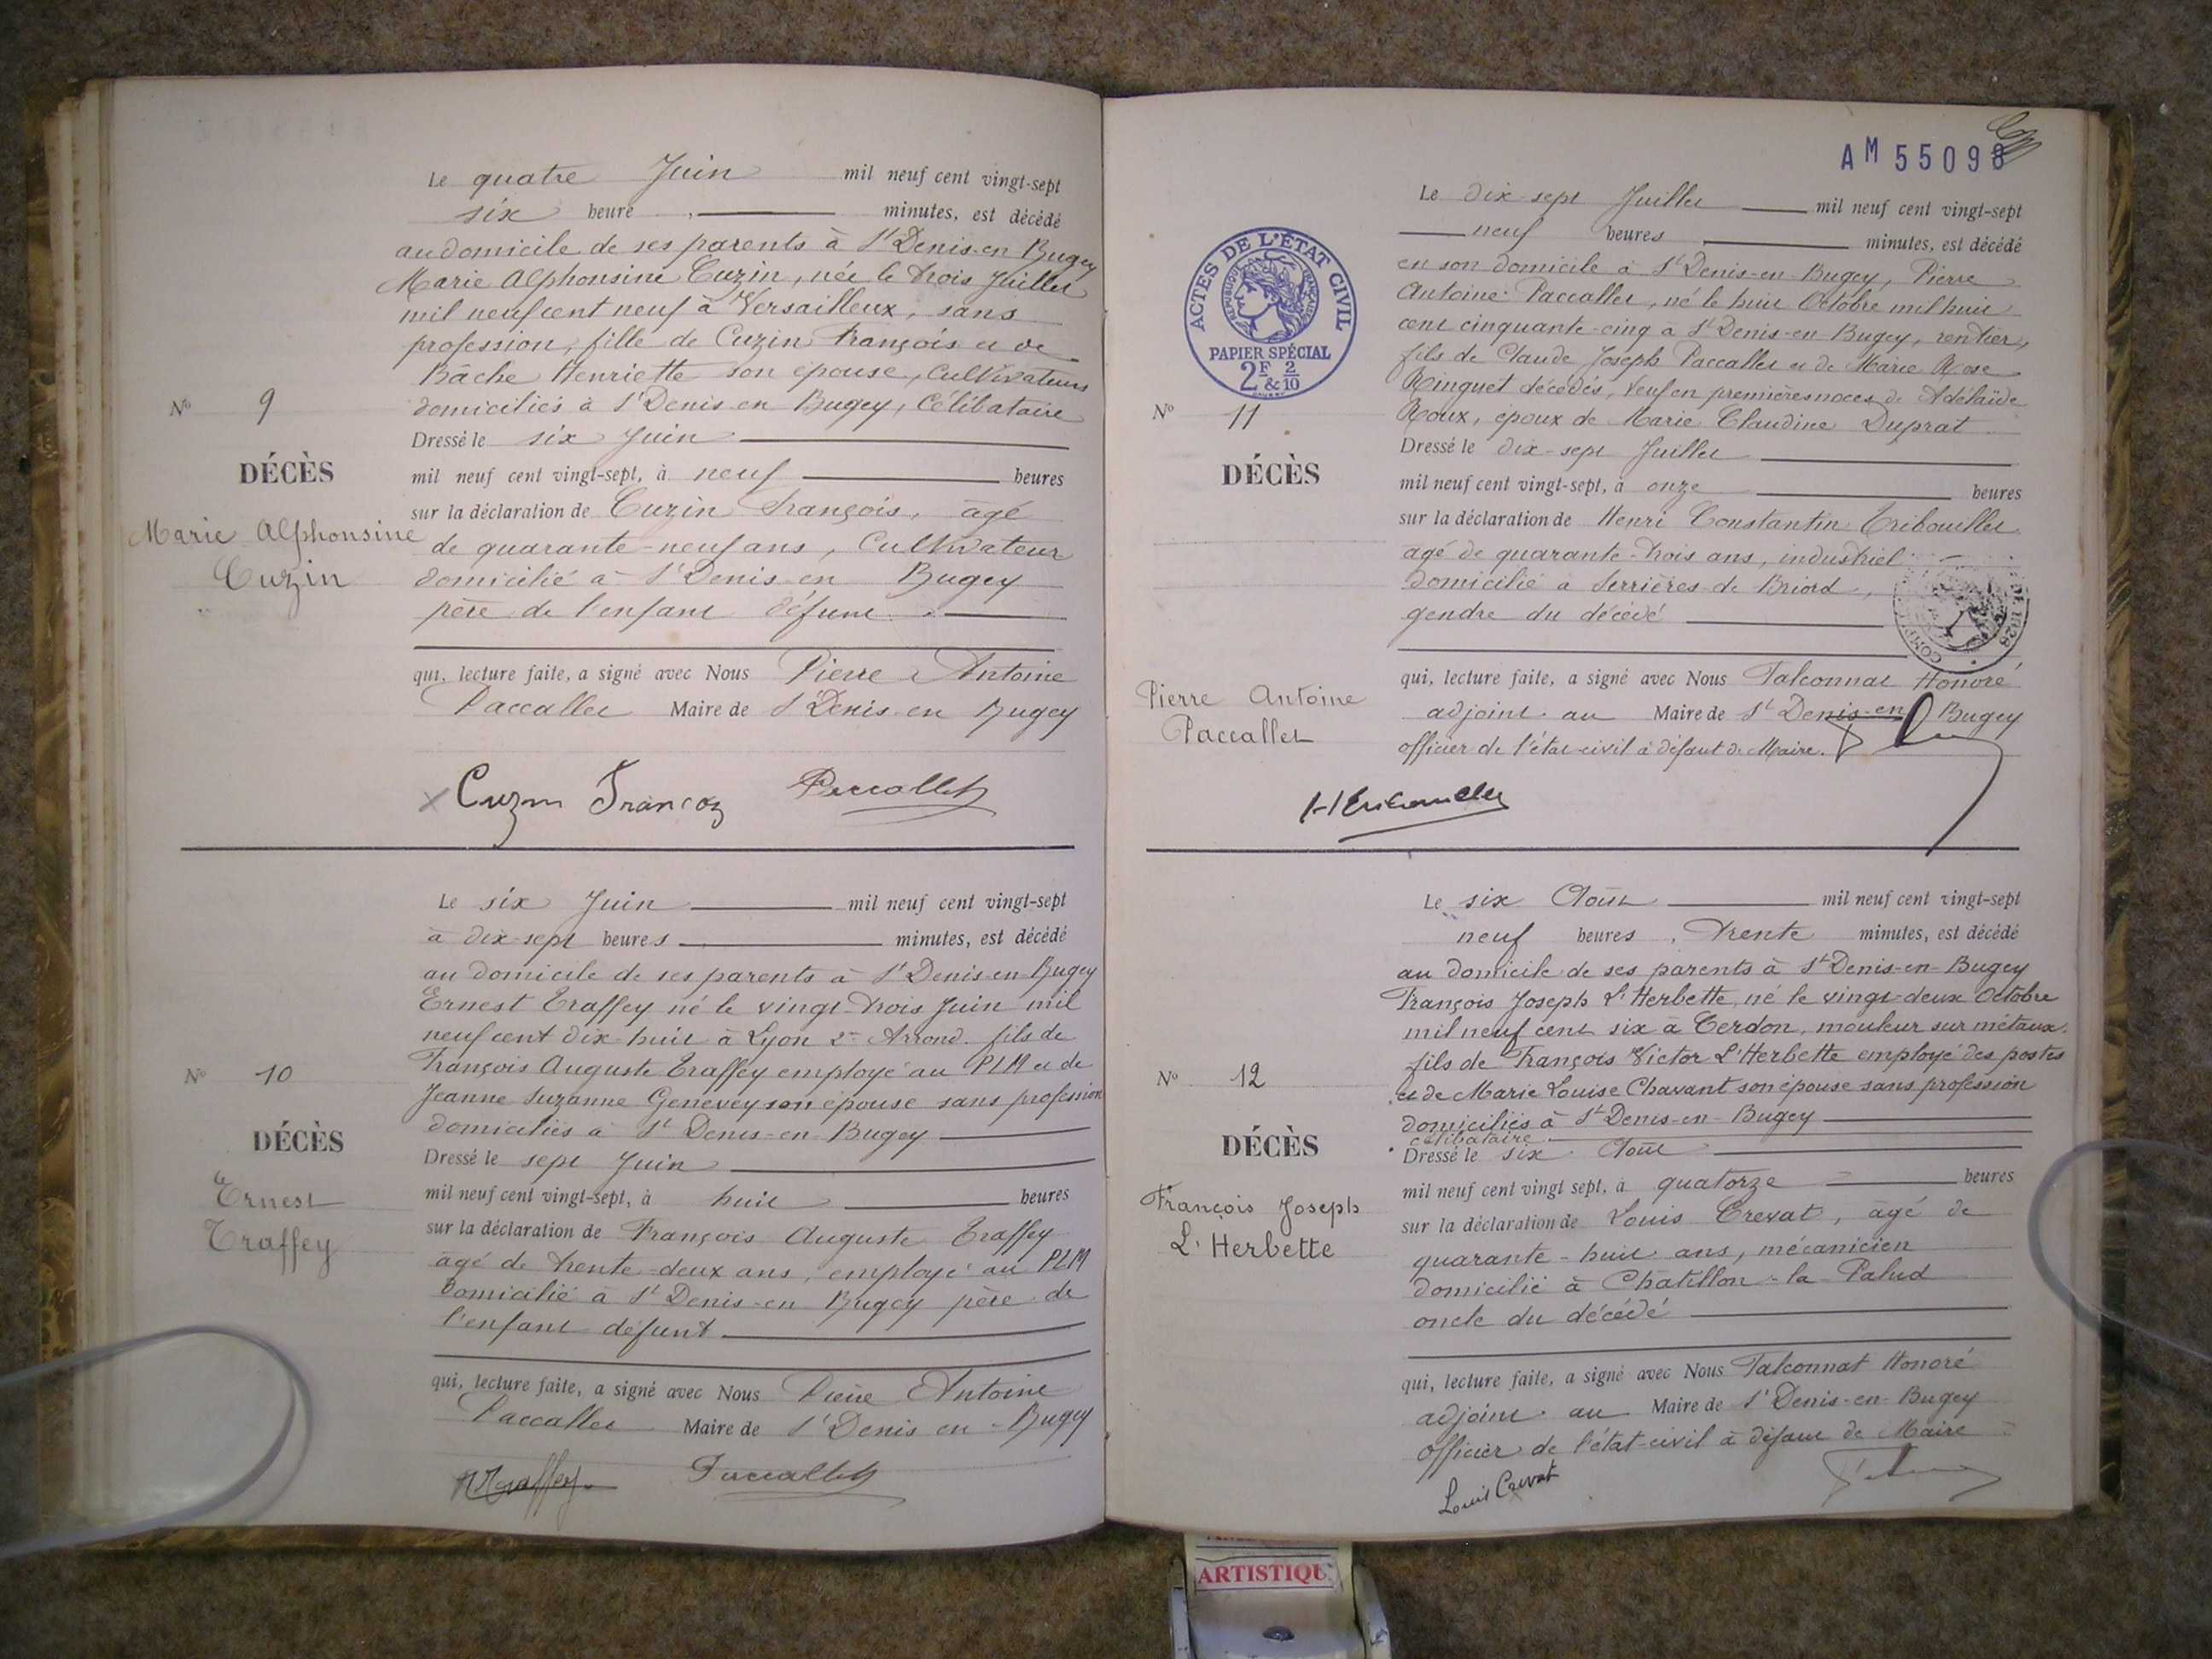 Le quatre Juin mil neuf cent vingt-sept
six heure minutes, est décédé
au domicile de ses parents à St Denis-en Bugey
Marie Alphonsine Cuzin, née le trois Juillet
mil neuf cent neuf à Versailleux, sans
profession, fille de Cuzin François et de
Bâche Henriette son épouse, Cultivateurs
domiciliés à St Denis en Bugey, Célibataire
Nº 9
DÉCÈS
Marie Alphonsine
Cuzin
Dressé le six Juin
mil neuf cent vingt-sept, à neuf heures
sur la déclaration de Cuzin François, âgé
de quarante-neuf ans, Cultivateur
domicilié à St Denis en Bugey
père de l'enfant défunt
qui, lecture faite, a signé avec Nous Pierre Antoine
Paccallet Maire de St Denis en Bugey
Cuzin François Paccallet
Le six Juin mil neuf cent vingt-sept
à dix-sept heures minutes, est décédé
au domicile de ses parents à St Denis-en-Bugey
Ernest Traffey né le vingt-trois Juin mil
neuf cent dix huit à Lyon 2e Arrond. fils de
François Auguste Traffey employé au PLM et de
Jeanne Suzanne Genevey son épouse sans profession
domiciliés à St Denis-en-Bugey
Nº 10
DÉCÈS
Ernest
Traffey
Dressé le sept Juin
mil neuf cent vingt-sept, à huit heures
sur la déclaration de François Auguste Traffey
âgé de trente-deux ans, employé au PLM
domicilié à St Denis-en Bugey père de
l'enfant défunt
qui, lecture faite, a signé avec Nous Pierre Antoine
Paccallet Maire de St Denis en-Bugey
Traffey Paccallet
AM 55098
ACTES DE L'ÉTAT CIVIL
RÉPUBLIQUE FRANÇAISE
PAPIER SPÉCIAL
2F & 2/10
Le dix-sept Juillet mil neuf cent vingt-sept
neuf heures minutes, est décédé
en son domicile à St Denis-en-Bugey, Pierre
Antoine Paccallet, né le huit Octobre mil huit
cent cinquante-cinq à St Denis-en Bugey, rentier,
fils de Claude Joseph Paccallet et de Marie Rose
Ringuet décédés, veuf en premières noces de Adélaïde
Roux, époux de Marie Claudine Duprat
Nº 11
DÉCÈS
Pierre Antoine
Paccallet
Dressé le dix-sept Juillet
mil neuf cent vingt-sept, à onze heures
sur la déclaration de Henri Constantin Tribouillet
âgé de quarante-trois ans, industriel
domicilié à Serrières-de Briord,
gendre du décédé
qui, lecture faite, a signé avec Nous Falconnat Honoré
adjoint au Maire de St Denis-en Bugey
officier de l'état-civil à défaut de Maire.
H Tribouillet
Le six Août mil neuf cent vingt-sept
neuf heures, trente minutes, est décédé
au domicile de ses parents à St Denis-en-Bugey
François Joseph L'Herbette, né le vingt-deux Octobre
mil neuf cent six à Cerdon, mouleur sur métaux.
fils de François Victor L'Herbette employé des postes
et de Marie Louise Chavant son épouse sans profession
domiciliés à St Denis-en-Bugey
célibataire
Nº 12
DÉCÈS
François Joseph
L'Herbette
Dressé le six Août
mil neuf cent vingt sept, à quatorze heures
sur la déclaration de Louis Crevat, âgé de
quarante-huit ans, mécanicien
domicilié à Châtillon-la-Palud
oncle du décédé
qui, lecture faite, a signé avec Nous Falconnat Honoré
adjoint au Maire de St Denis-en-Bugey
officier de l'état-civil à défaut de Maire
Louis Crevat
ARTISTIQU